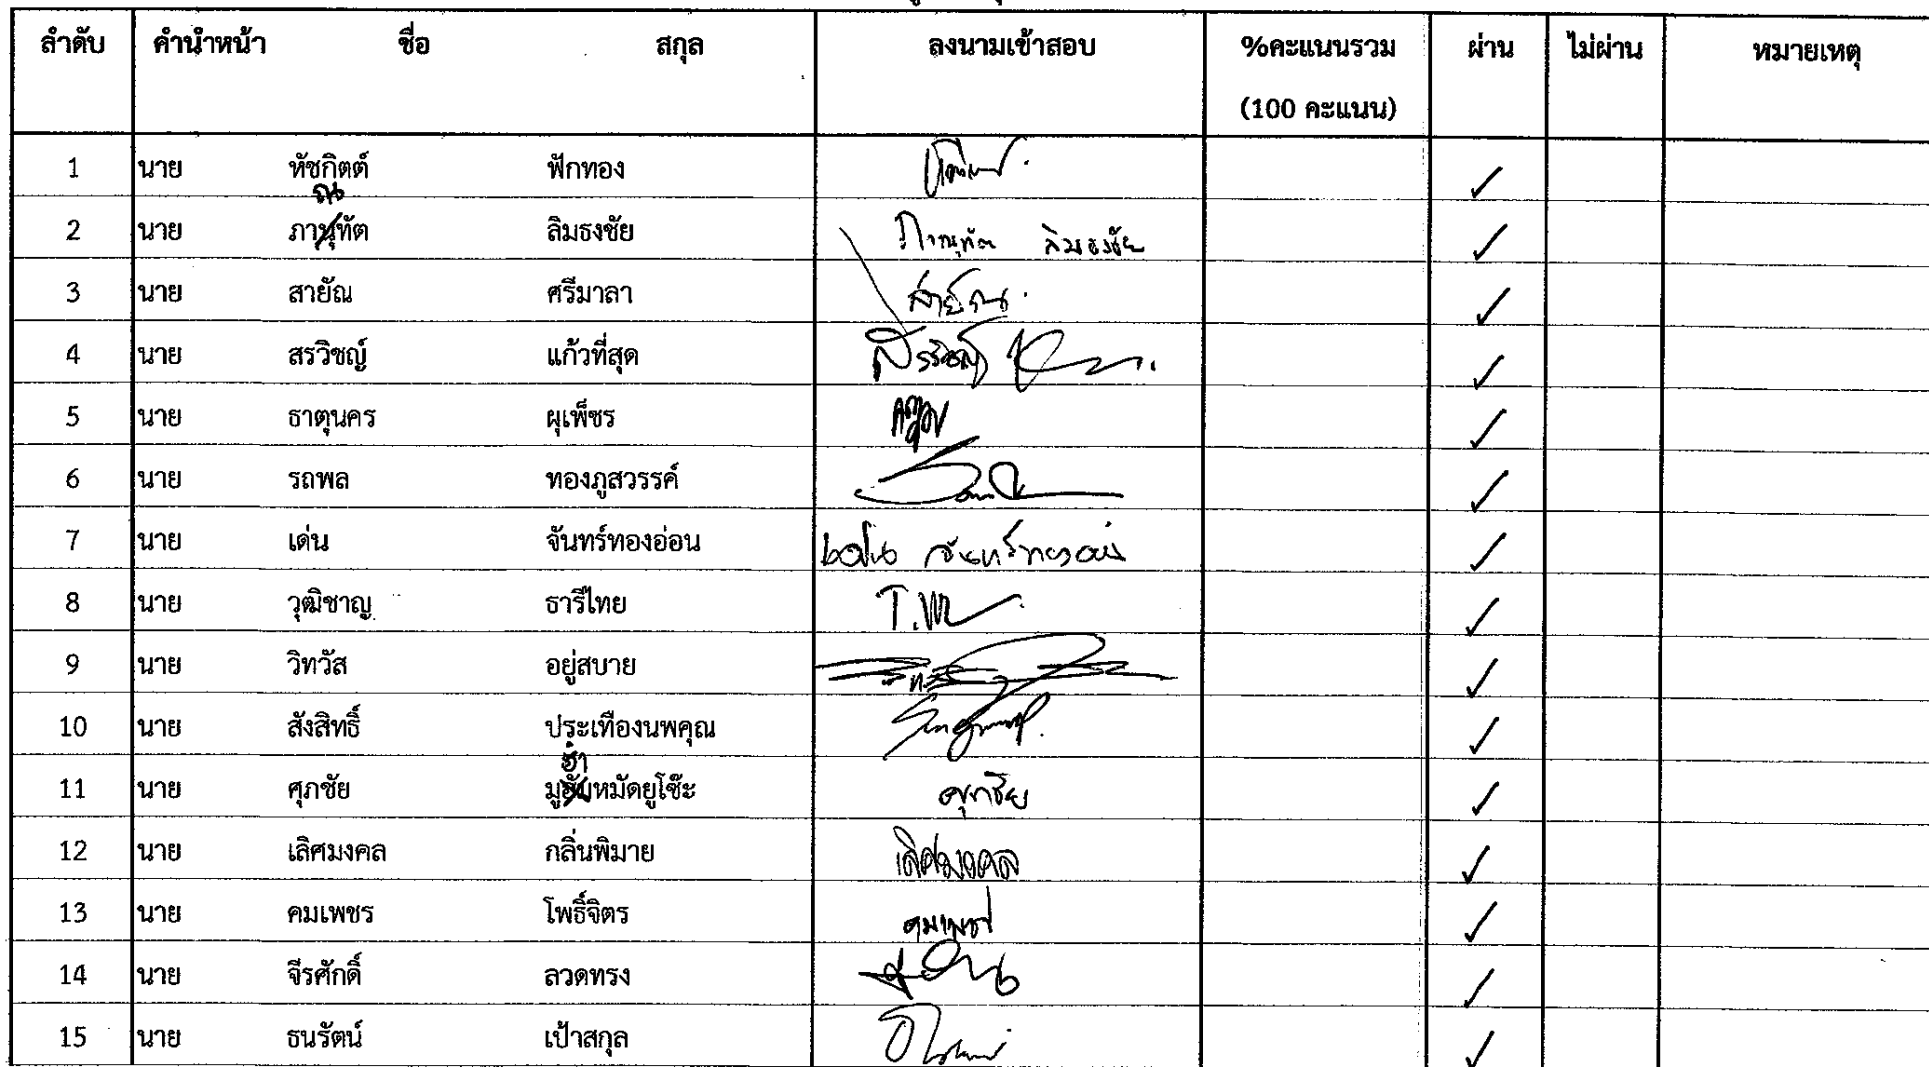 ลำดับ คำนำหน้า ชื่อ สกุล ลงนามเข้าสอบ %คะแนนรวม ผ่าน ไม่ผ่าน หมายเหตุ
(100 คะแนน)
1 นาย หัชกิตต์ ฟักทอง ✓
ณ
2 นาย ภานุทัต ลิมธงชัย ภาณุทัต ลิมธงชัย ✓
3 นาย สายัณ ศรีมาลา สายัณ ✓
4 นาย สรวิชญ์ แก้วที่สุด สรวิชญ์ ✓
5 นาย ธาตุนคร ผุเพ็ชร ✓
6 นาย รถพล ทองภูสวรรค์ ✓
7 นาย เด่น จันทร์ทองอ่อน เด่น จันทร์ทองอ่อน ✓
8 นาย วุฒิชาญ ธารีไทย ✓
9 นาย วิทวัส อยู่สบาย ✓
10 นาย สังสิทธิ์ ประเทืองนพคุณ ✓
ฮำ
11 นาย ศุภชัย มูฮัมหมัดยูโซ๊ะ ศุภชัย ✓
12 นาย เลิศมงคล กลิ่นพิมาย เลิศมงคล ✓
13 นาย คมเพชร โพธิ์จิตร คมเพชร ✓
14 นาย จีรศักดิ์ ลวดทรง ✓
15 นาย ธนรัตน์ เป้าสกุล ✓